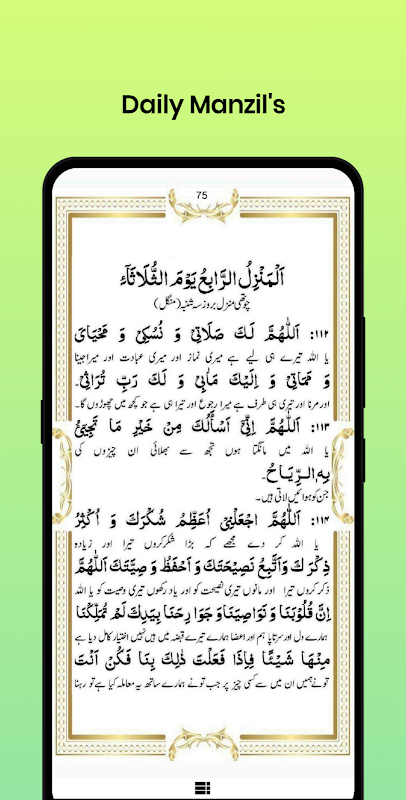 Daily Manzil's
75
اَلْمَنْزِلُ الرَّابِعُ يَوْمَ الثُّلَاثَآءِ
چوتھی منزل بروز سہ شنبہ (منگل)
۱۱۲: اَللّٰهُمَّ لَكَ صَلَاتِيْ وَ نُسُكِيْ وَ مَحْيَايَ
یا اللہ تیرے ہی لیے ہے میری نماز اور میری عبادت اور میرا جینا
وَ مَمَاتِيْ وَ اِلَيْكَ مَاٰبِيْ وَ لَكَ رَبِّ تُرَاثِيْ۔
اور مرنا اور تیری ہی طرف ہے میرا رجوع اور تیرا ہی ہے جو کچھ میں چھوڑوں گا۔
۱۱۳: اَللّٰهُمَّ اِنِّيْ اَسْأَلُكَ مِنْ خَيْرِ مَا تَجِيْئُ
یا اللہ میں مانگتا ہوں تجھ سے بھلائی ان چیزوں کی
بِهِ الرِّيَاحُ۔
جن کو ہوائیں لاتی ہیں۔
۱۱۴: اَللّٰهُمَّ اجْعَلْنِيْ اُعَظِّمُ شُكْرَكَ وَ اُكْثِرُ
یا اللہ کر دے مجھے کہ بڑا شکر کروں تیرا اور زیادہ
ذِكْرَكَ وَ اَتَّبِعُ نَصِيْحَتَكَ وَ اَحْفَظُ وَ صِيَّتَكَ اَللّٰهُمَّ
ذکر کروں تیرا اور مانوں تیری نصیحت کو اور یاد رکھوں تیری وصیت کو یا اللہ
اِنَّ قُلُوْبَنَا وَ نَوَاصِيَنَا وَ جَوَارِحَنَا بِيَدِكَ لَمْ تُمَلِّكْنَا
ہمارے دل اور سرتاپا ہم اور اعضا ہمارے تیرے قبضہ میں ہیں نہیں اختیار کامل دیا ہے
مِنْهَا شَيْئًا فَاِذَا فَعَلْتَ ذٰلِكَ بِنَا فَكُنْ اَنْتَ
تونے ہمیں ان میں سے کسی چیز پر جب تونے ہمارے ساتھ یہ معاملہ کیا ہے تو رہنا